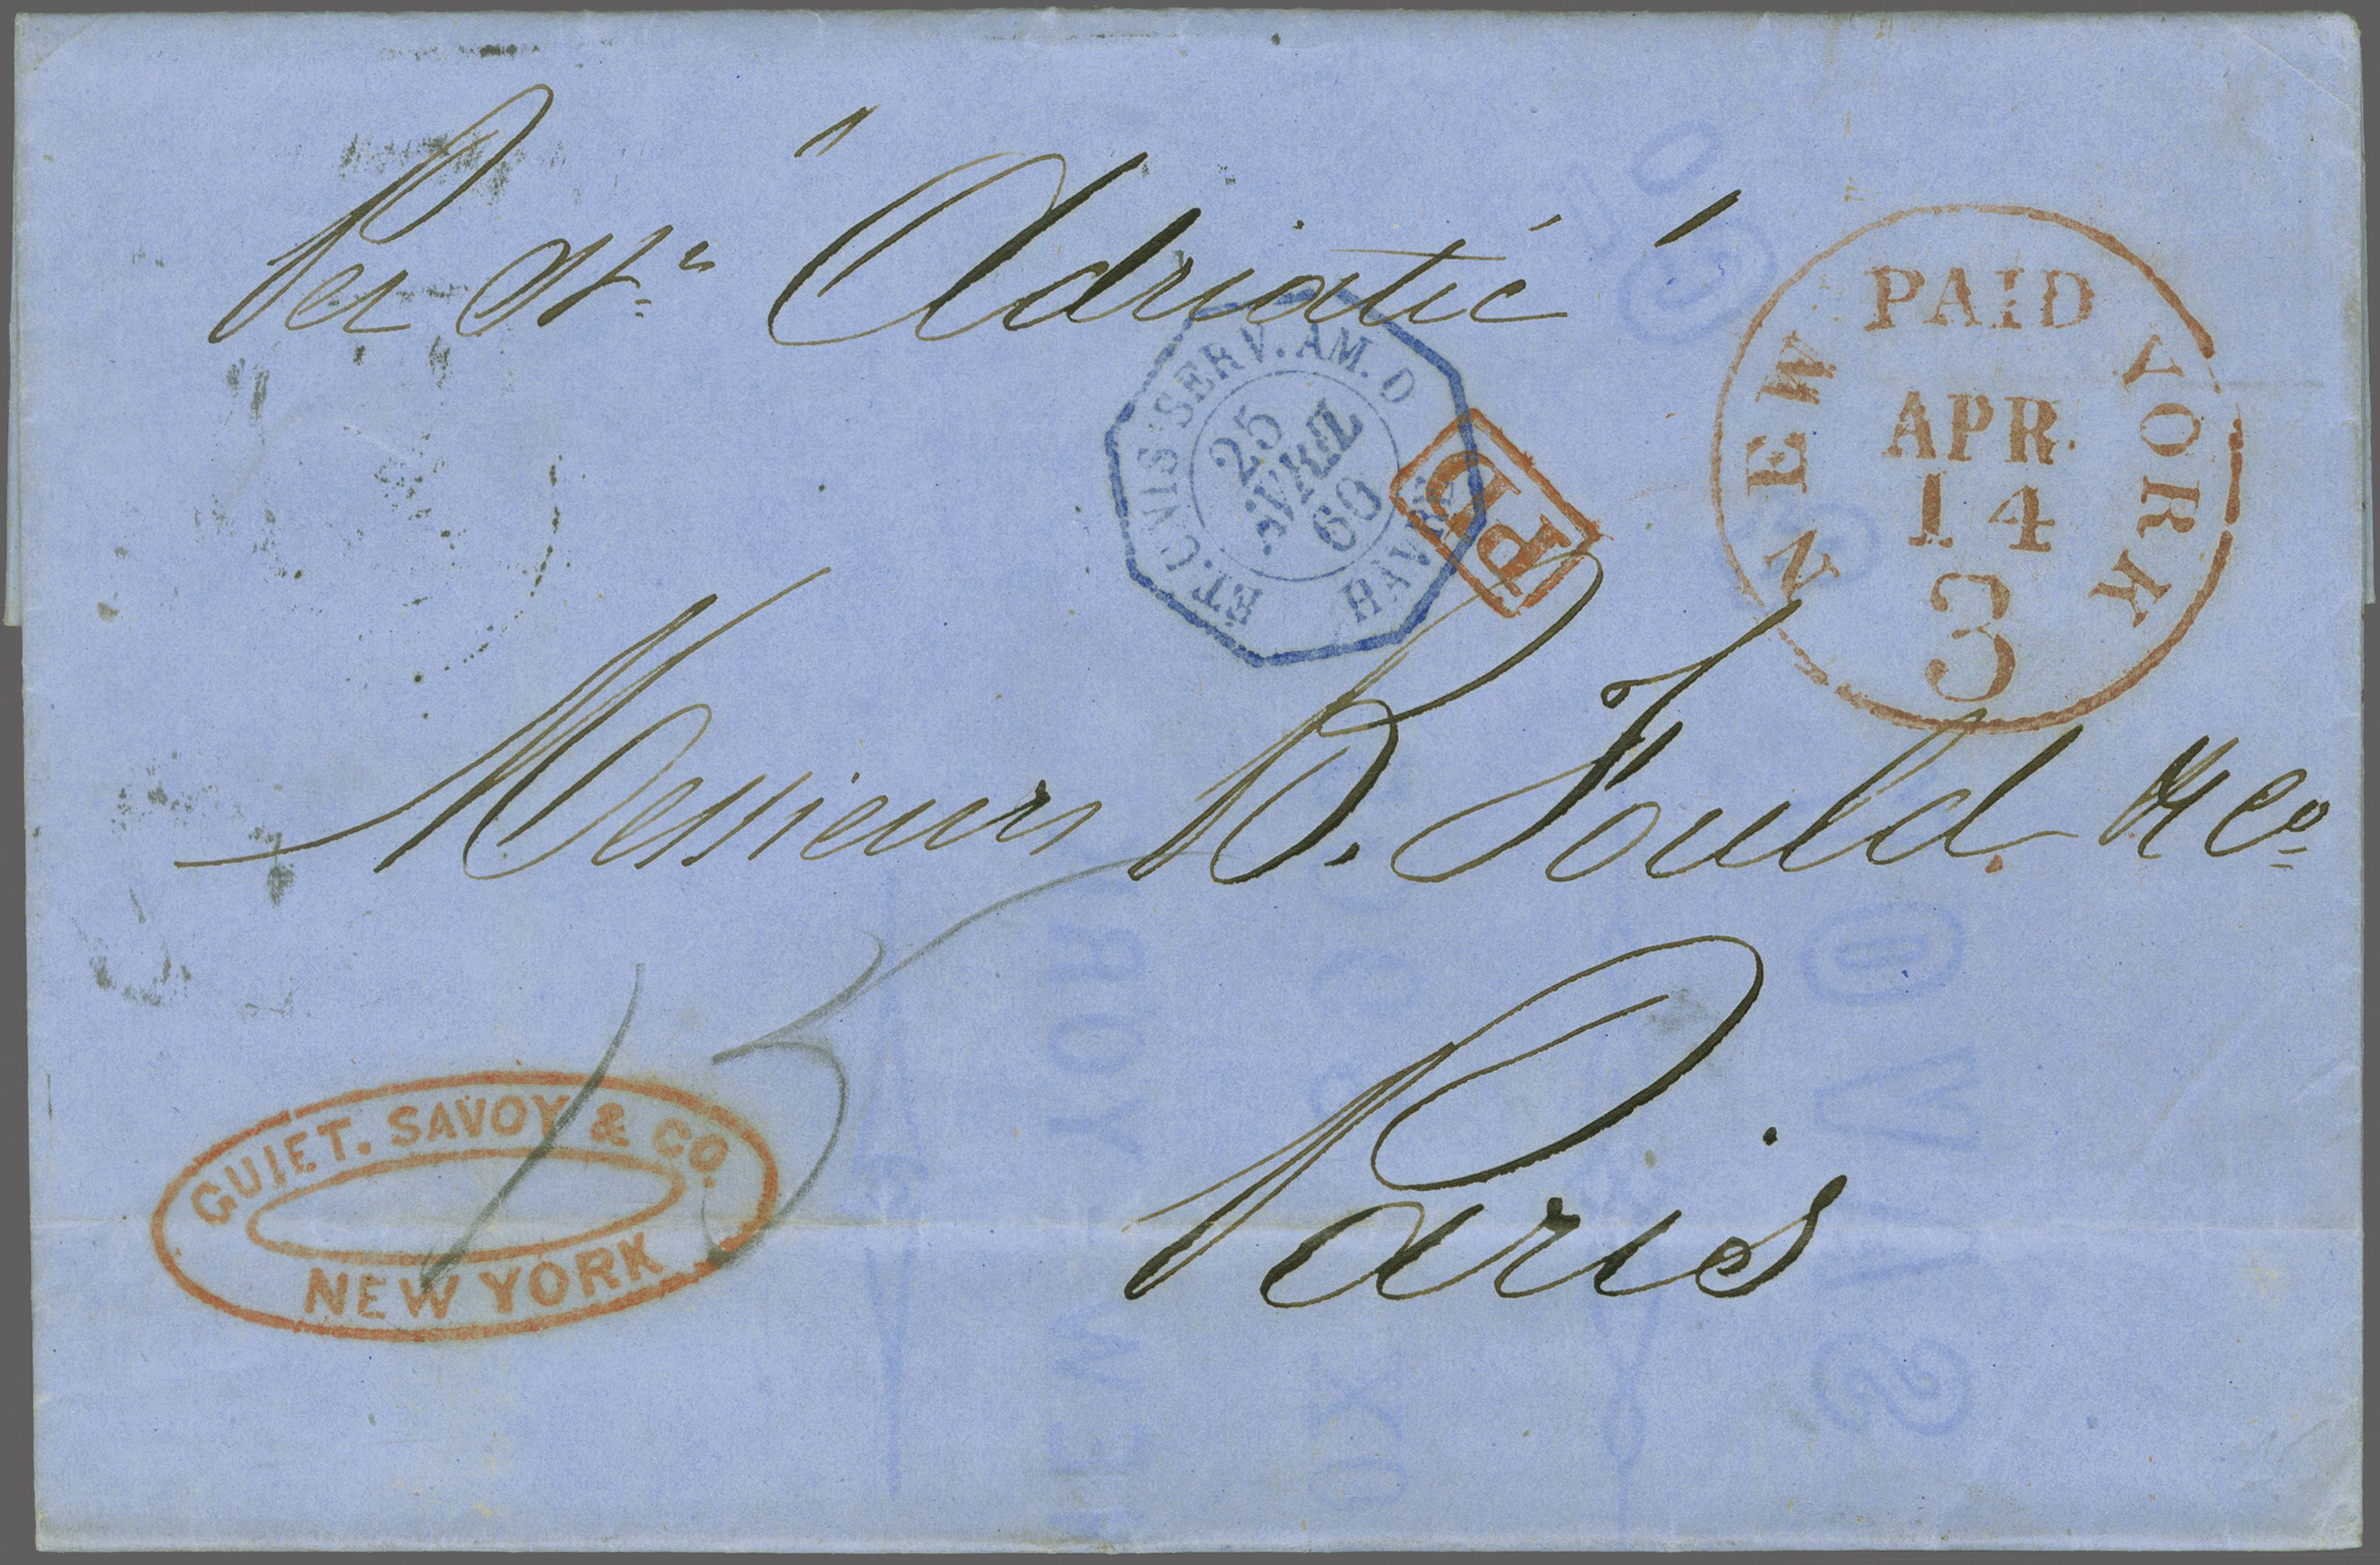 Per Str "Adriatic"
NEW PAID YORK
APR.
14
3
ET. UNIS SERV. AM. D HAVRE
25
AVRIL
60
PD
Messieurs B. Fould & Co
Paris
15
GUIET. SAVOY & CO.
NEW YORK